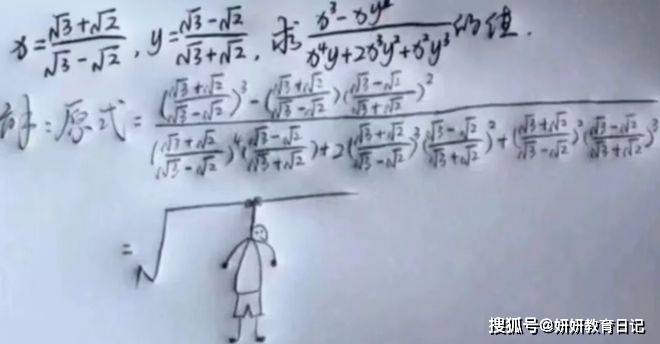 x=(√3+√2)/(√3-√2), y=(√3-√2)/(√3+√2), 求 (x³-xy²)/(x⁴y+2x³y²+x²y³) 的值.
解:原式=(((√3+√2)/(√3-√2))³-((√3+√2)/(√3-√2))((√3-√2)/(√3+√2))²)/(((√3+√2)/(√3-√2))⁴((√3-√2)/(√3+√2))+2((√3+√2)/(√3-√2))³((√3-√2)/(√3+√2))²+((√3+√2)/(√3-√2))²((√3-√2)/(√3+√2))³)
=√
搜狐号@妍妍教育日记